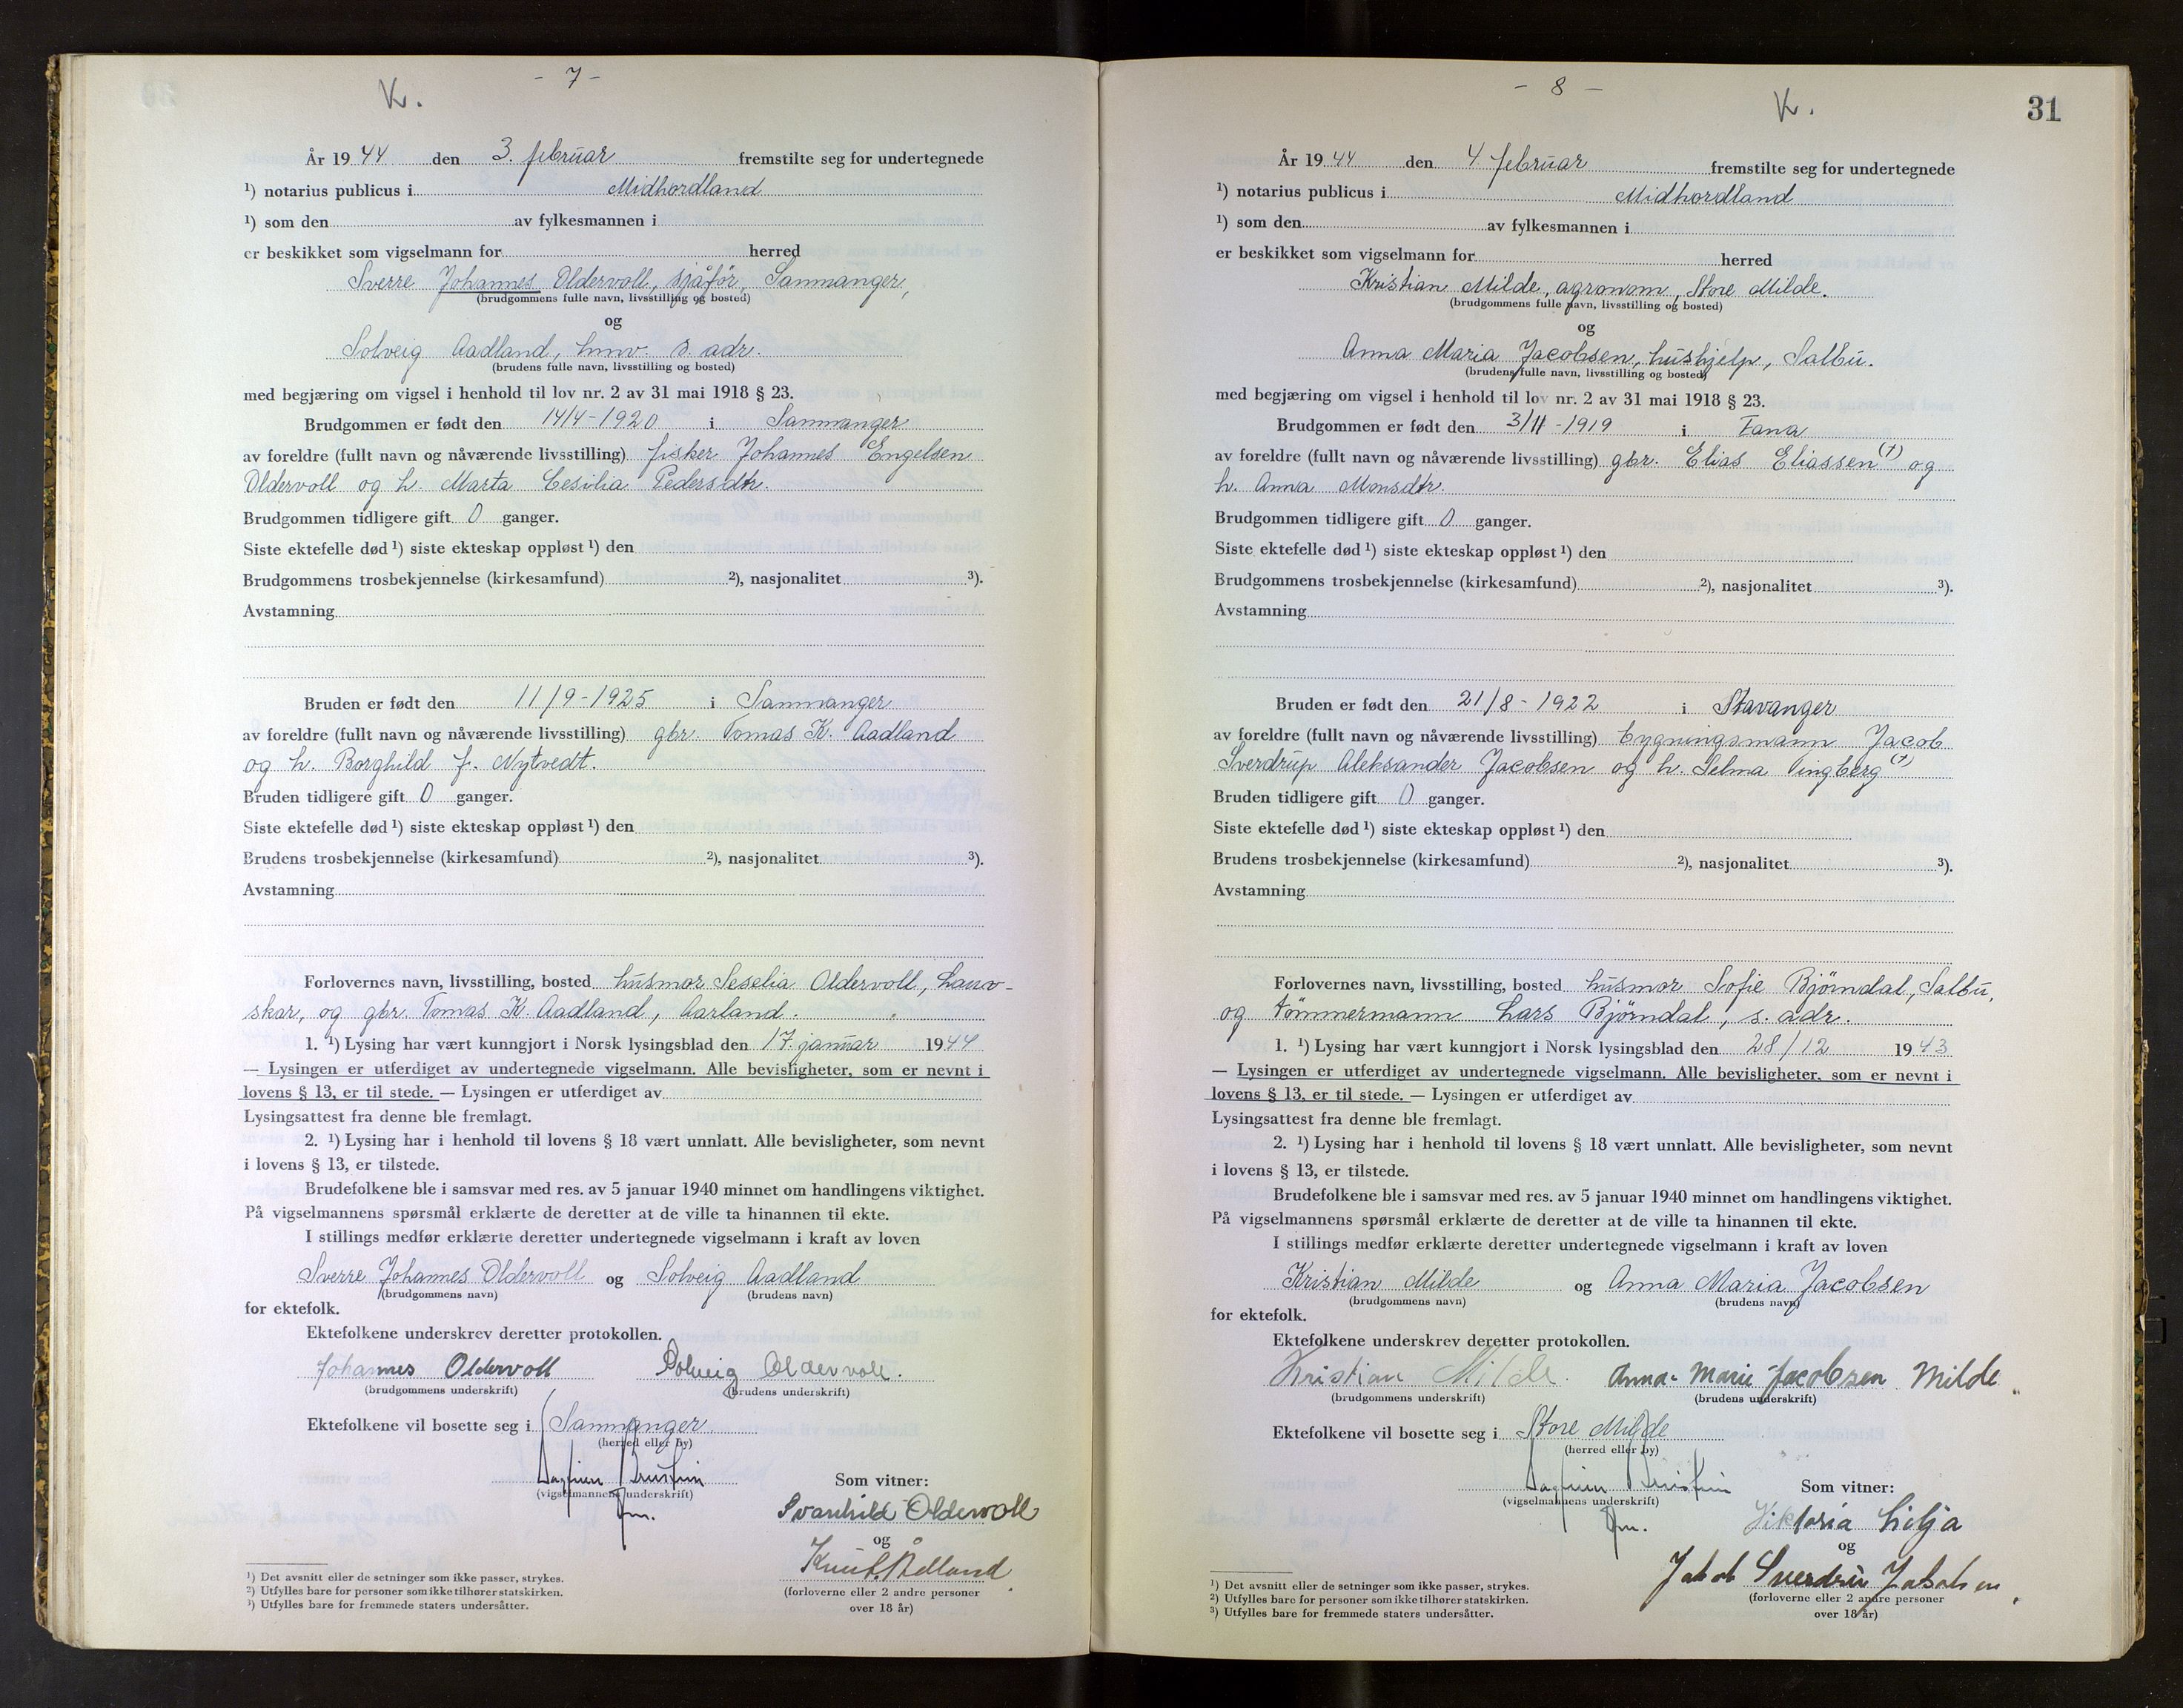 - 7 -
K.
År 1944 den 3. februar fremstilte seg for undertegnede
¹) notarius publicus i Midhordland
¹) som den av fylkesmannen i
er beskikket som vigselmann for herred
Sverre Johannes Oldervoll, sjåfør, Samnanger,
(brudgommens fulle navn, livsstilling og bosted)
og
Solveig Aadland, hmv. s. adr.
(brudens fulle navn, livsstilling og bosted)
med begjæring om vigsel i henhold til lov nr. 2 av 31 mai 1918 § 23.
Brudgommen er født den 14/4-1920 i Samnanger
av foreldre (fullt navn og nåværende livsstilling) fisker Johannes Engelsen
Oldervoll og h. Marta Cesilia Pedersdtr.
Brudgommen tidligere gift 0 ganger.
Siste ektefelle død ¹) siste ekteskap oppløst ¹) den
Brudgommens trosbekjennelse (kirkesamfund) ²), nasjonalitet ³).
Avstamning
Bruden er født den 11/9-1925 i Samnanger
av foreldre (fullt navn og nåværende livsstilling) gbr. Tomas K. Aadland
og h. Borghild f. Nytvedt.
Bruden tidligere gift 0 ganger.
Siste ektefelle død ¹) siste ekteskap oppløst ¹) den
Brudens trosbekjennelse (kirkesamfund) ²), nasjonalitet ³).
Avstamning
Forlovernes navn, livsstilling, bosted husmor Seselia Oldervoll,
skar, og gbr. Tomas K. Aadland, Aarland.
1. ¹) Lysing har vært kunngjort i Norsk lysingsblad den 17. januar 1944
— Lysingen er utferdiget av undertegnede vigselmann. Alle bevisligheter, som er nevnt i
lovens § 13, er til stede. — Lysingen er utferdiget av
Lysingsattest fra denne ble fremlagt.
2. ¹) Lysing har i henhold til lovens § 18 vært unnlatt. Alle bevisligheter, som nevnt
i lovens § 13, er tilstede.
Brudefolkene ble i samsvar med res. av 5 januar 1940 minnet om handlingens viktighet.
På vigselmannens spørsmål erklærte de deretter at de ville ta hinannen til ekte.
I stillings medfør erklærte deretter undertegnede vigselmann i kraft av loven
Sverre Johannes Oldervoll og Solveig Aadland
(brudgommens navn) (brudens navn)
for ektefolk.
Ektefolkene underskrev deretter protokollen.
Johannes Oldervoll Solveig Oldervoll.
(brudgommens underskrift) (brudens underskrift)
Ektefolkene vil bosette seg i Samnanger
(herred eller by)
(vigselmannens underskrift) Som vitner:
Svanhild Oldervoll
og
Knut Ådland
(forloverne eller 2 andre personer
over 18 år)
¹) Det avsnitt eller de setninger som ikke passer, strykes.
²) Utfylles bare for personer som ikke tilhører statskirken.
³) Utfylles bare for fremmede staters undersåtter.
- 8 -
K.
31
År 1944 den 4. februar fremstilte seg for undertegnede
¹) notarius publicus i Midhordland
¹) som den av fylkesmannen i
er beskikket som vigselmann for herred
Kristian Milde, agronom, Store Milde.
(brudgommens fulle navn, livsstilling og bosted)
og
Anna Maria Jacobsen, hushjelp, Salbu.
(brudens fulle navn, livsstilling og bosted)
med begjæring om vigsel i henhold til lov nr. 2 av 31 mai 1918 § 23.
Brudgommen er født den 3/11-1919 i Fana
av foreldre (fullt navn og nåværende livsstilling) gbr. Elias Eliassen (†) og
h. Anna Monsdtr.
Brudgommen tidligere gift 0 ganger.
Siste ektefelle død ¹) siste ekteskap oppløst ¹) den
Brudgommens trosbekjennelse (kirkesamfund) ²), nasjonalitet ³).
Avstamning
Bruden er født den 21/8-1922 i Stavanger
av foreldre (fullt navn og nåværende livsstilling) bygningsmann Jacob
Sverdrup Aleksander Jacobsen og h. Selma Tingberg (†)
Bruden tidligere gift 0 ganger.
Siste ektefelle død ¹) siste ekteskap oppløst ¹) den
Brudens trosbekjennelse (kirkesamfund) ²), nasjonalitet ³).
Avstamning
Forlovernes navn, livsstilling, bosted husmor Sofie Bjørndal, Salbu,
og tømmermann Lars Bjørndal, s. adr.
1. ¹) Lysing har vært kunngjort i Norsk lysingsblad den 28/12 1943
— Lysingen er utferdiget av undertegnede vigselmann. Alle bevisligheter, som er nevnt i
lovens § 13, er til stede. — Lysingen er utferdiget av
Lysingsattest fra denne ble fremlagt.
2. ¹) Lysing har i henhold til lovens § 18 vært unnlatt. Alle bevisligheter, som nevnt
i lovens § 13, er tilstede.
Brudefolkene ble i samsvar med res. av 5 januar 1940 minnet om handlingens viktighet.
På vigselmannens spørsmål erklærte de deretter at de ville ta hinannen til ekte.
I stillings medfør erklærte deretter undertegnede vigselmann i kraft av loven
Kristian Milde og Anna Maria Jacobsen
(brudgommens navn) (brudens navn)
for ektefolk.
Ektefolkene underskrev deretter protokollen.
Kristian Milde. Anna-Marie Jacobsen Milde
(brudgommens underskrift) (brudens underskrift)
Ektefolkene vil bosette seg i Store Milde
(herred eller by)
(vigselmannens underskrift) Som vitner:
Viktoria Lilja
og
Jakob Sverdrup Jakobsen
(forloverne eller 2 andre personer
over 18 år)
¹) Det avsnitt eller de setninger som ikke passer, strykes.
²) Utfylles bare for personer som ikke tilhører statskirken.
³) Utfylles bare for fremmede staters undersåtter.